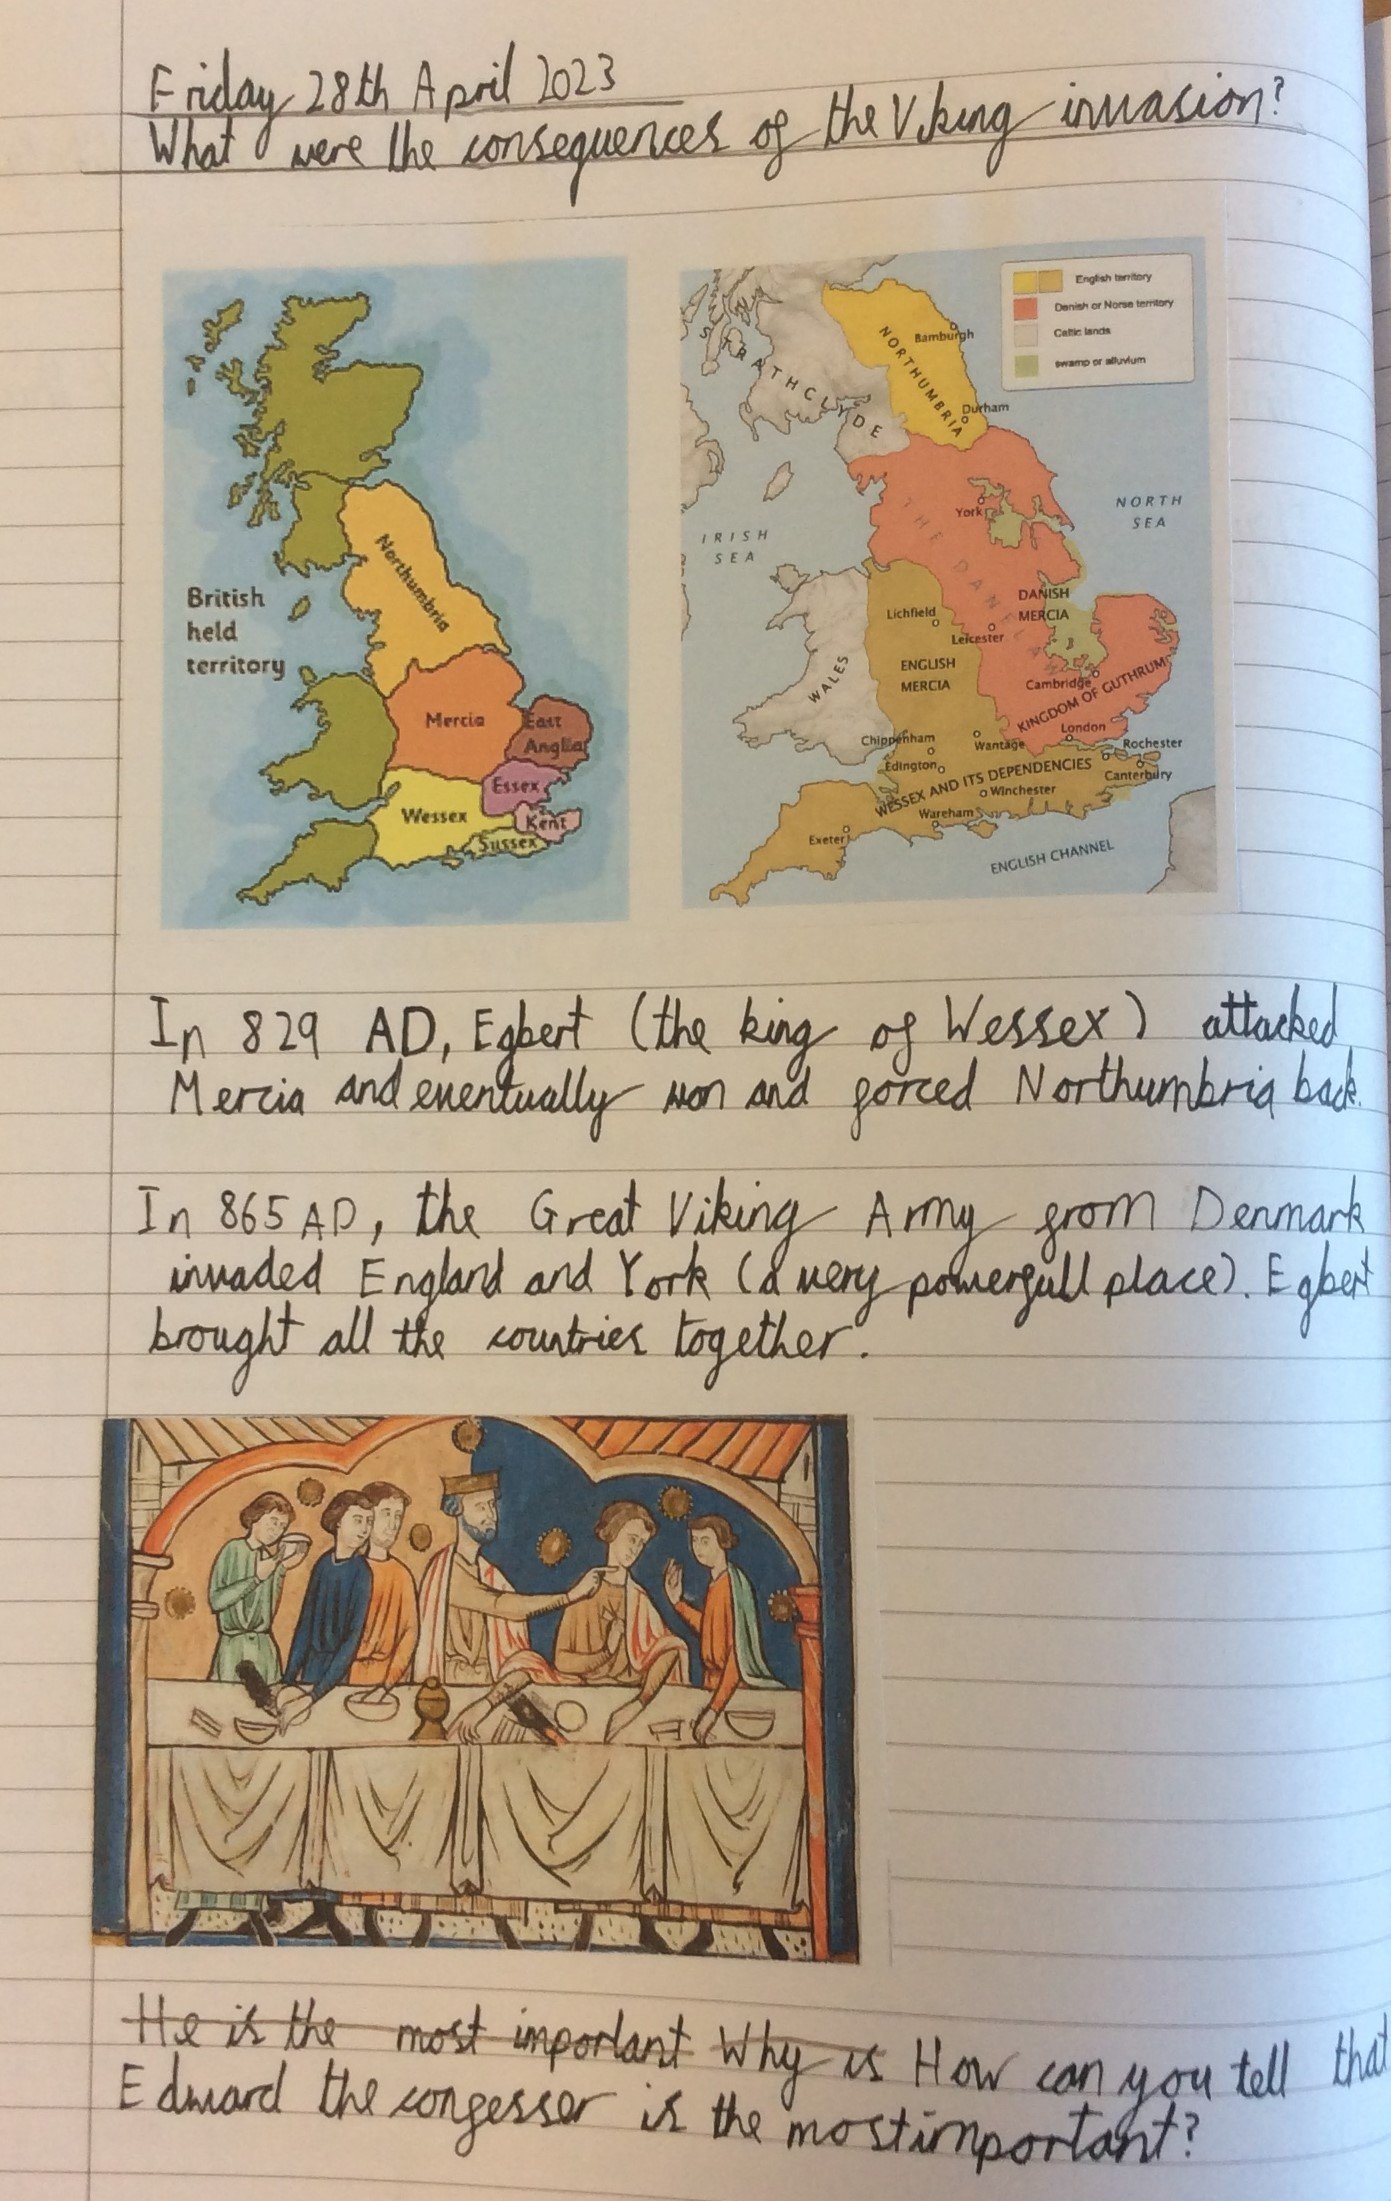 Friday 28th April 2023
What were the consequences of the Viking invasion?
British
held
territory
Northumbria
Mercia
East
Anglia
Essex
Wessex
Kent
Sussex
English territory
Danish or Norse territory
Celtic lands
swamp or alluvium
STRATHCLYDE
NORTHUMBRIA
Bamburgh
Durham
NORTH
SEA
IRISH
SEA
York
THE DANELAW
DANISH
MERCIA
Lichfield
Leicester
ENGLISH
MERCIA
WALES
Cambridge
KINGDOM OF GUTHRUM
London
Chippenham
Wantage
Rochester
Edington
Canterbury
WESSEX AND ITS DEPENDENCIES
Winchester
Wareham
Exeter
ENGLISH CHANNEL
In 829 AD, Egbert (the king of Wessex) attacked
Mercia and eventually won and forced Northumbria back.
In 865 AD, the Great Viking Army from Denmark
invaded England and York (a very powerfull place). Egbert
brought all the countries together.
He is the most important Why is How can you tell that
Edward the confesser is the most important?